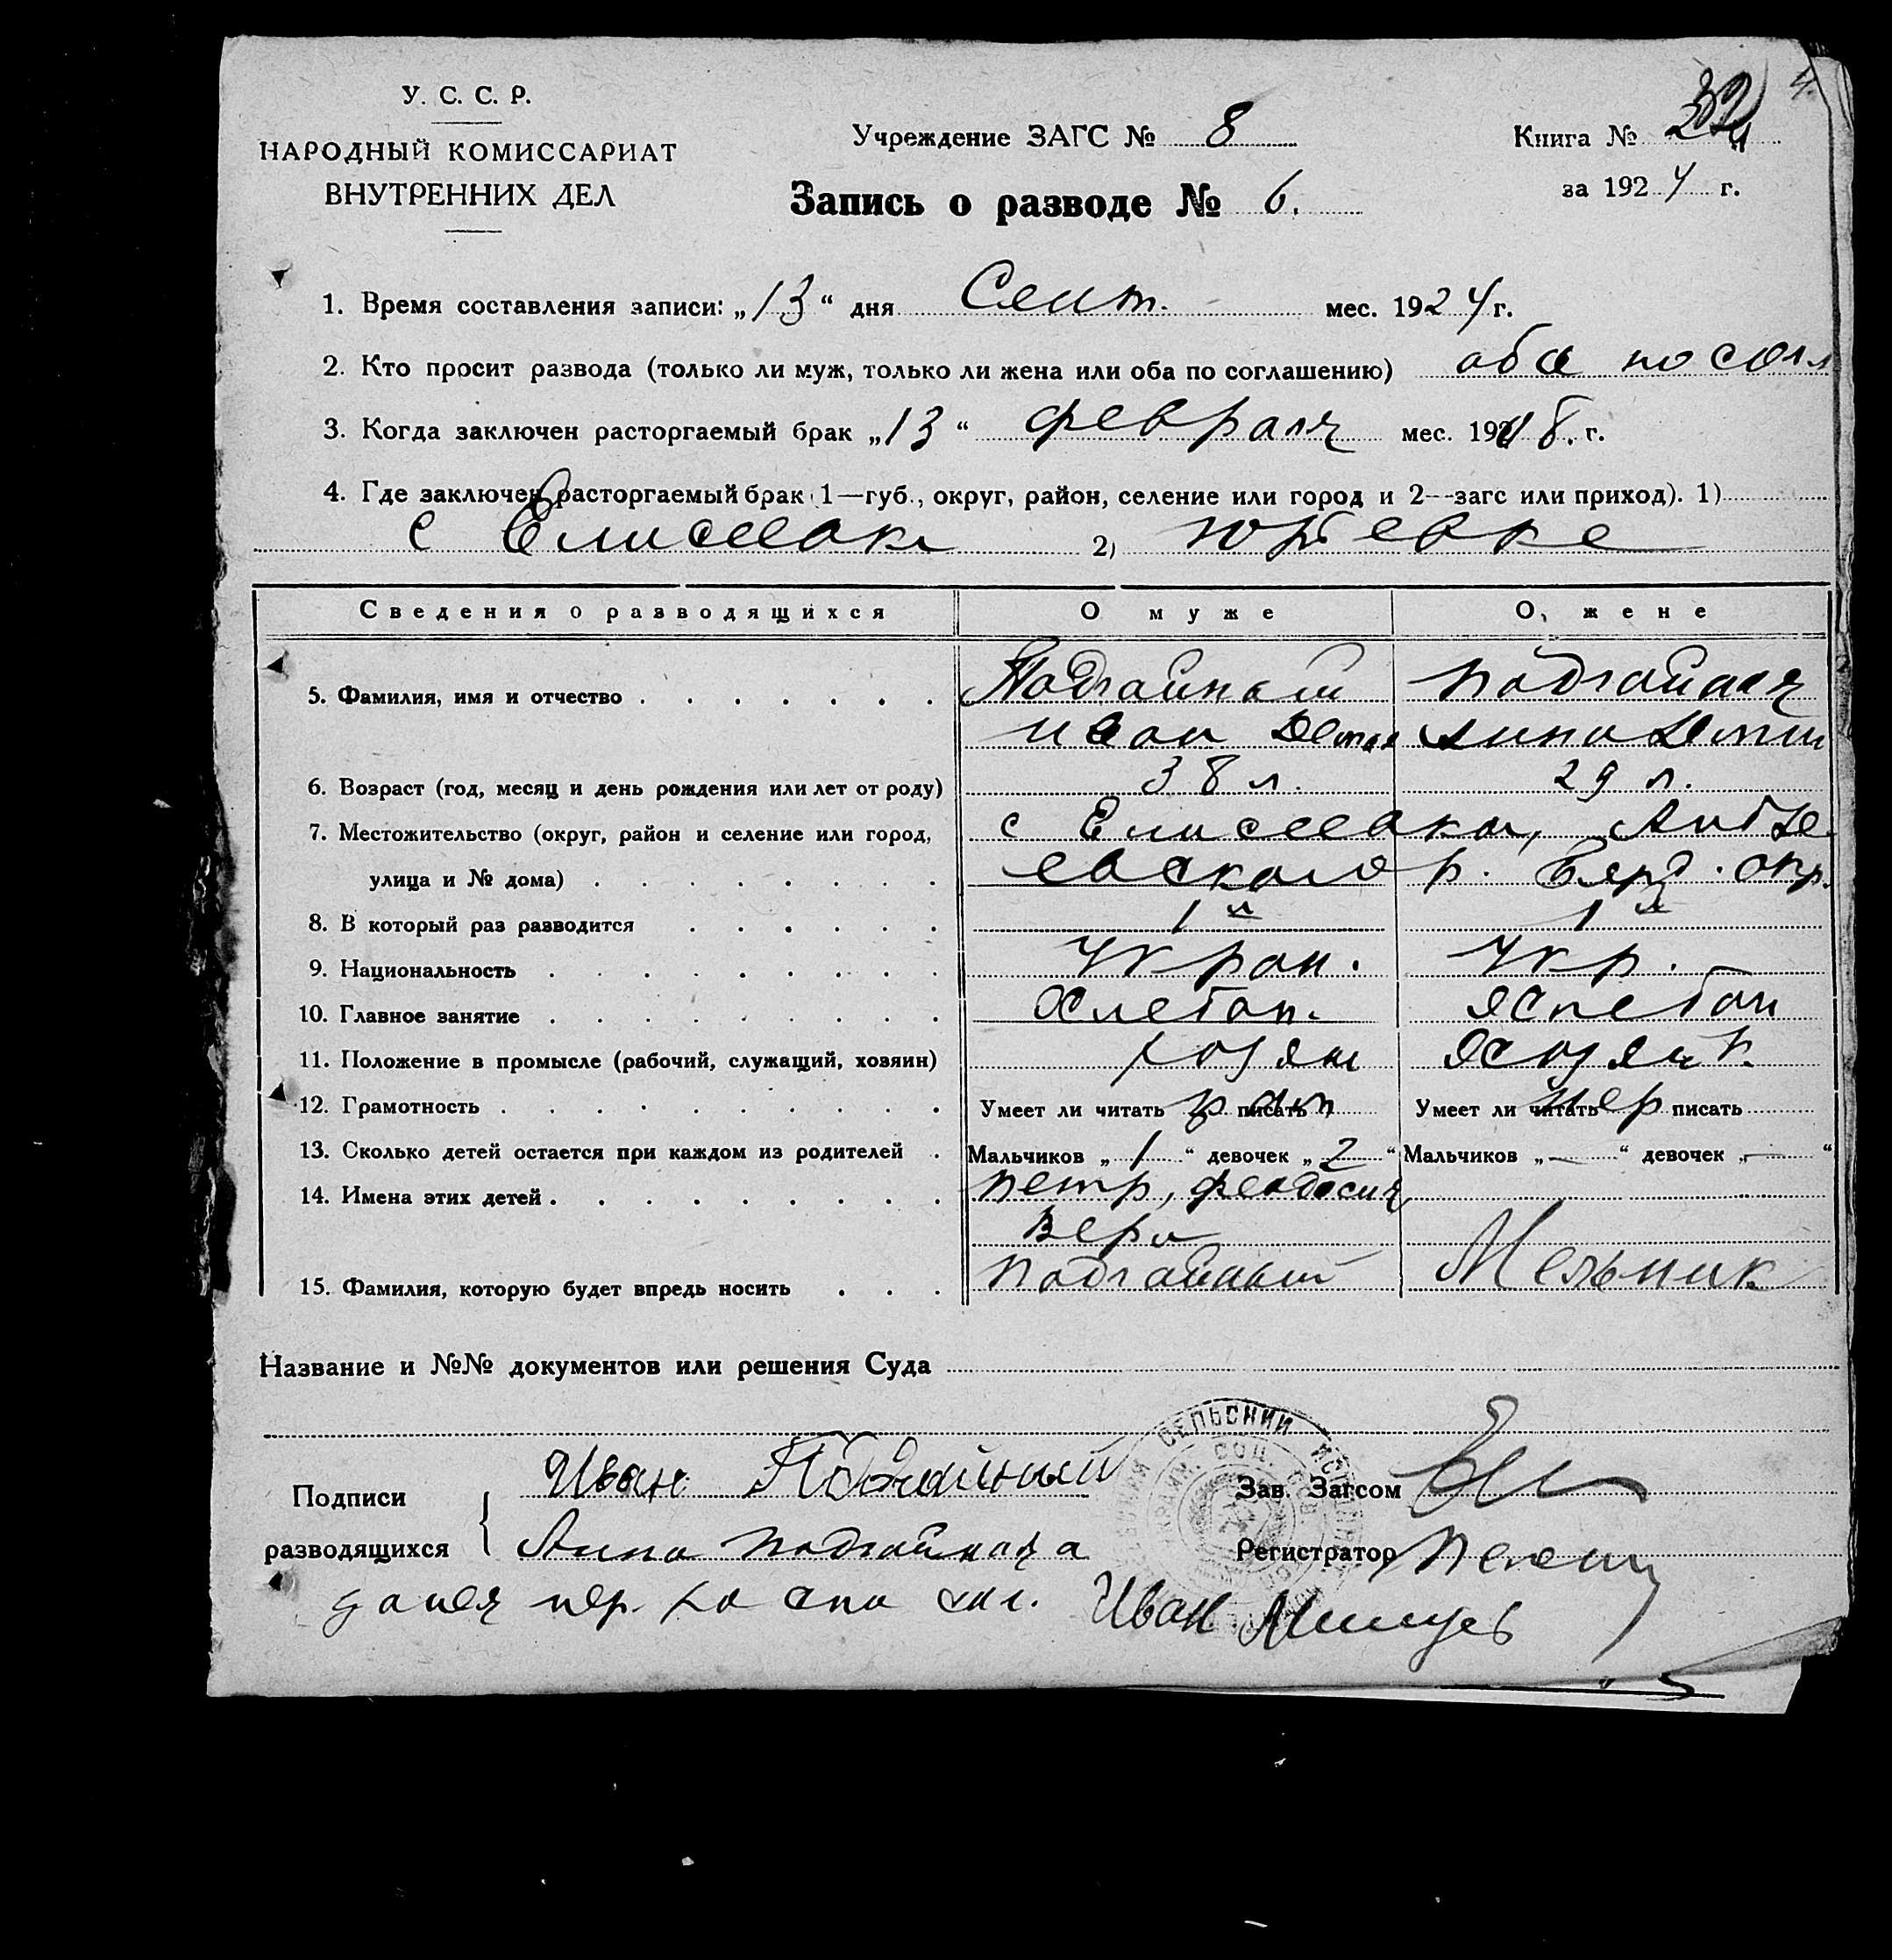 У. С. С. Р.
НАРОДНЫЙ КОМИССАРИАТ
ВНУТРЕННИХ ДЕЛ
Учреждение ЗАГС № 8
Книга №
за 1924 г.
Запись о разводе № 6.
1. Время составления записи: „13“ дня Сент. мес. 1924 г.
2. Кто просит развода (только ли муж, только ли жена или оба по соглашению) оба по согл
3. Когда заключен расторгаемый брак „13“ февраля мес. 1918. г.
4. Где заключен расторгаемый брак (1—губ., округ, район, селение или город и 2—загс или приход). 1)
с Елисеевке 2) Юрьевке
Сведения о разводящихся О муже О жене
5. Фамилия, имя и отчество Подгайный Подгайная
Иван Анна
6. Возраст (год, месяц и день рождения или лет от роду) 38 л. 29 л.
7. Местожительство (округ, район и селение или город, с Елисеевки,
улица и № дома) р. Бярд. окр.
8. В который раз разводится 1й 1й
9. Национальность Украи. Укр.
10. Главное занятие Хлебоп. Хлебоп
11. Положение в промысле (рабочий, служащий, хозяин) хозяин
12. Грамотность Умеет ли читать писать Умеет ли читать писать
13. Сколько детей остается при каждом из родителей Мальчиков „1“ девочек „2“ Мальчиков „—“ девочек „—“
14. Имена этих детей Петр, Феодосия,
Вера
15. Фамилия, которую будет впредь носить Подгайный Мельник
Название и №№ документов или решения Суда
Подписи Иван Подгайный Зав. Загсом
разводящихся Анна Подгайная Регистратор
Иван